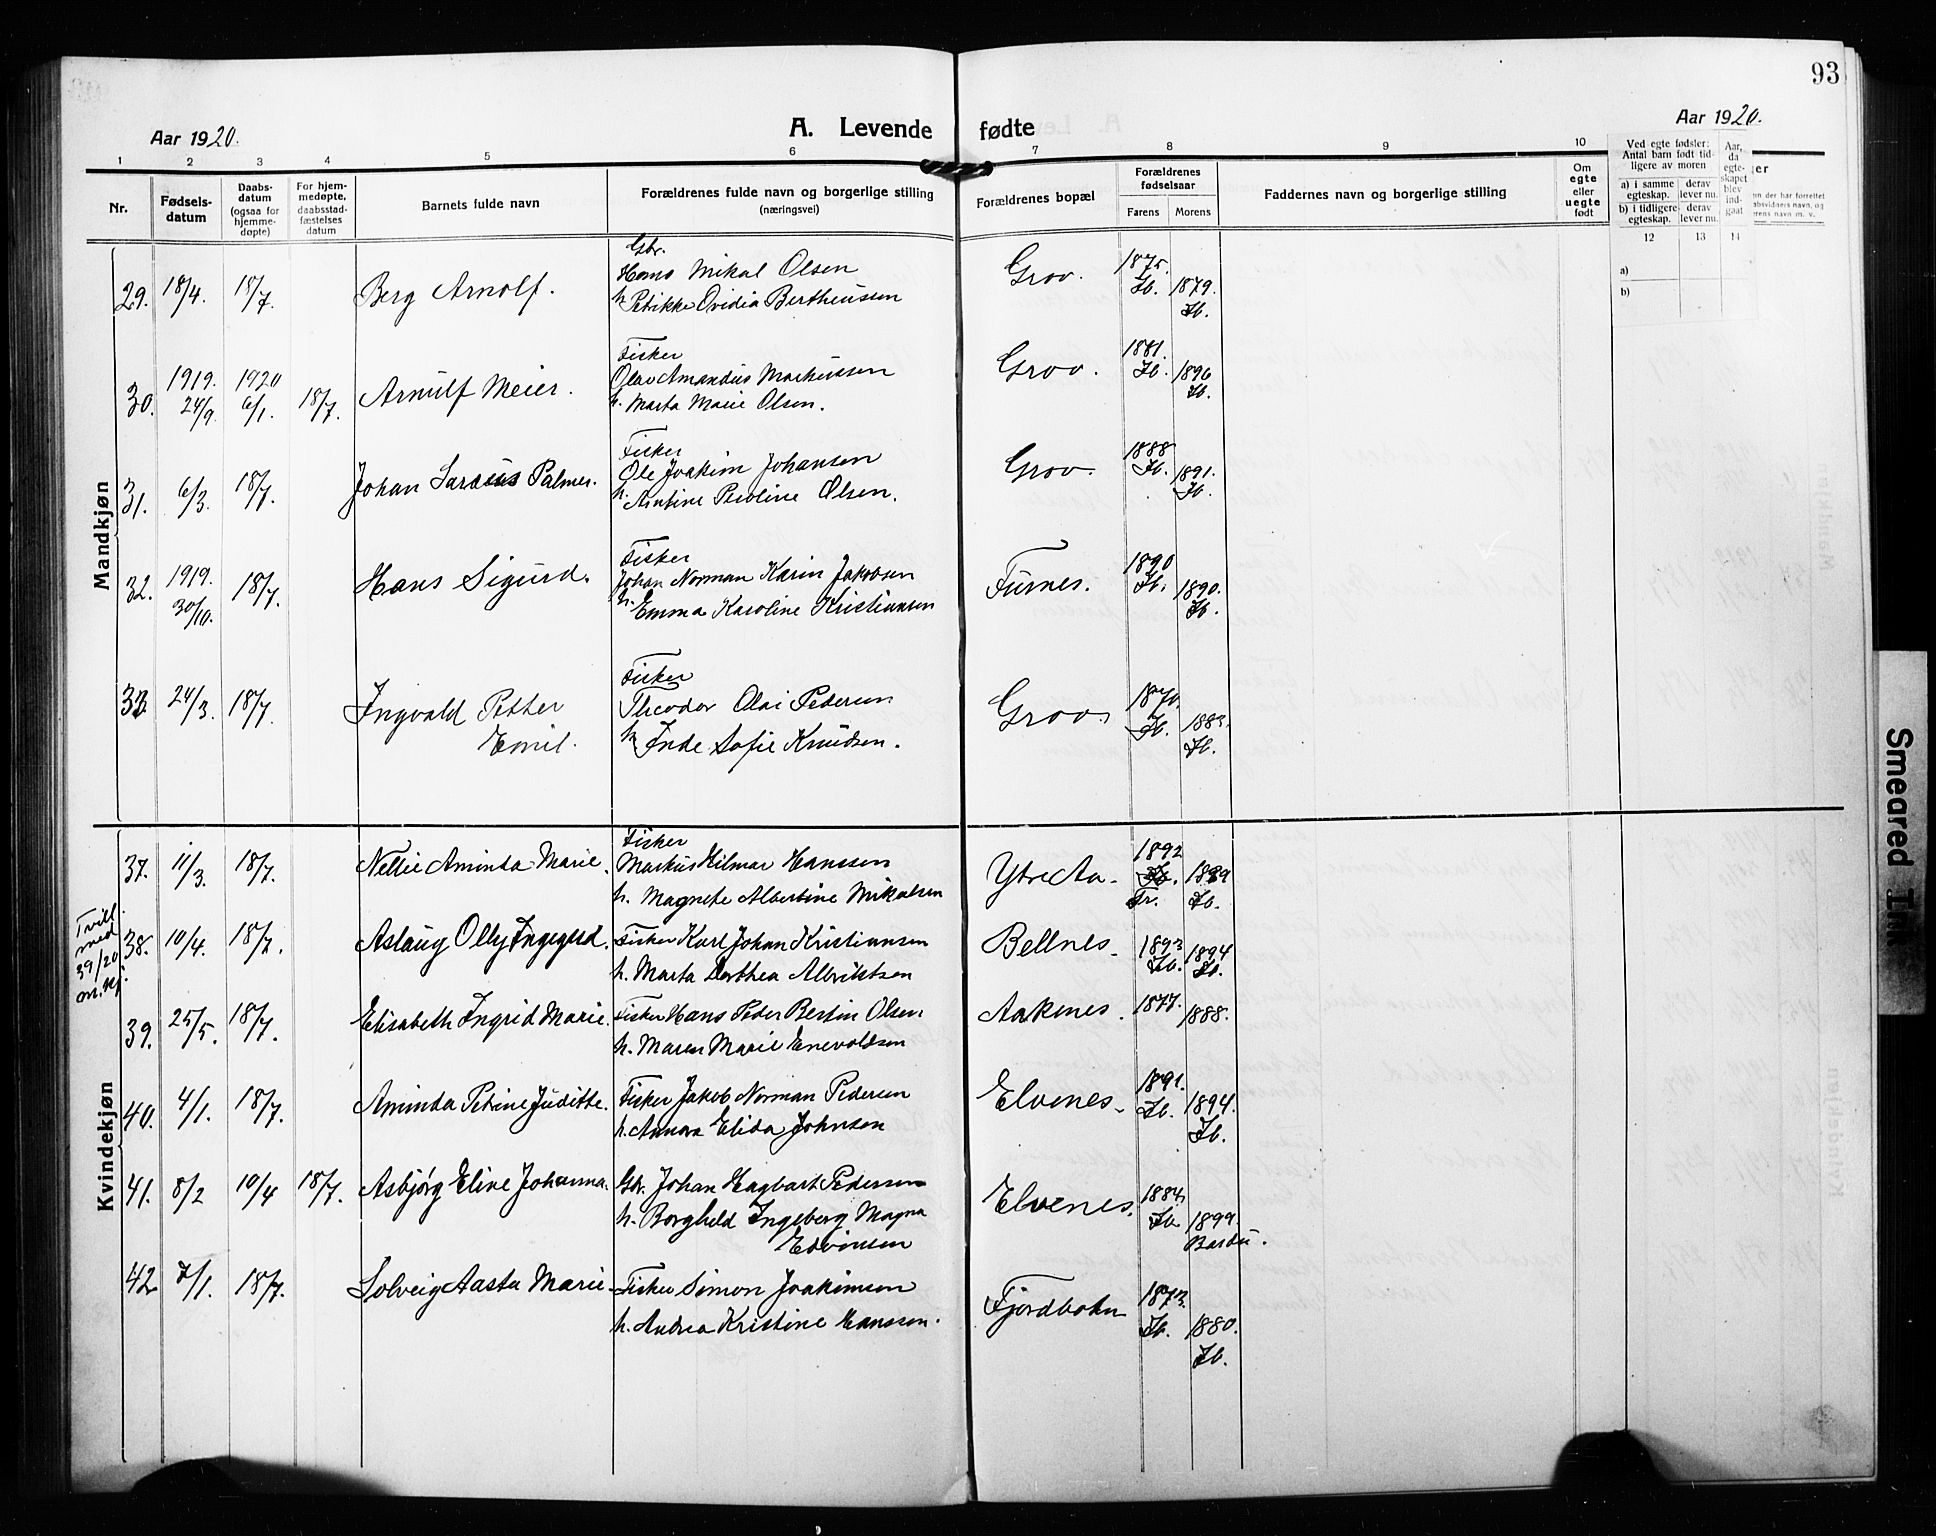 93
Aar 1920.
A. Levende fødte
Aar 1920.
1 2 3 4 5 6 7 8 9 10
Nr.
Fødsels-
datum
Daabs-
datum
(ogsaa for
hjemme-
døpte)
For hjem-
medøpte,
daabsstad-
fæstelses
datum
Barnets fulde navn
Forældrenes fulde navn og borgerlige stilling
(næringsvei)
Forældrenes bopæl
Forældrenes
fødselsaar
Farens. Morens.
Faddernes navn og borgerlige stilling
Om
egte
eller
uegte
født
Ved egte fødsler:
Antal barn født tid-
ligere av moren
a) i samme
egteskap.
derav
lever nu.
b) i tidligere
egteskap.
derav
lever nu.
Aar,
da
egte-
skapet
blev
ind-
gaat
12 13 14
a)
b)
Mandkjøn
Gbr.
29. 18/4. 18/7. Berg Arnolf. Hans Mikal Olsen Grov. 1875. Ib.
h. Petrikke Ovidia Bertheussen 1879. Ib.
Fisker
30. 1919. 24/9. 1920 6/1. 18/7. Arnulf Meier. Olav Amandus Markussen Grov. 1881. Ib.
h. Marta Marie Olsen. 1896 Ib.
Fisker
31. 6/3. 18/7. Johan Palmer. Ole Joakim Johansen Grov. 1888 Ib.
h. Antine Peroline Olsen. 1891. Ib.
Fisker
32. 1919. 30/10. 18/7. Hans Sigurd. Johan Norman Karin Jakobsen Furnes. 1890 Ib.
h. Emma Karoline Kristiansen 1890. Ib.
Fisker
33 24/3. 18/7. Ingvald Petter Theodor Olai Pedersen Grov. 1870. Ib.
Emil. h. Inde Sofie Knudsen. 1883. Ib.
Kvindekjøn
Fisker
37. 11/3. 18/7. Nellie Aminda Marie. Markus Hilmar Hanssen Ytre Aa. 1892 Ib. Tr.
h. Magnete Albertine Mikalsen 1889 Ib.
Tvill.
med
39/20
m.kj.
38. 10/4. 18/7. Aslaug Olly Ingegerd. Fisker Karl Johan Kristiansen Bellnes. 1893 Ib.
h. Marta Dorthea Albriktsen 1894 Ib.
39. 25/5. 18/7. Elisabeth Ingrid Marie. Fisker Hans Peder Bertin Olsen Aakenes. 1877.
h. Maren Marie Enevoldsen 1888.
40. 4/1. 18/7. Aminda Petrine Juditte. Fisker Jakob Norman Pedersen Elvenes. 1891. Ib.
h. Annora Elida Johnsen 1894. Ib.
41. 8/2 10/4 18/7. Asbjørg Eline Johanna. Gbr. Johan Hagbart Pedersen Elvenes. 1884. Ib
h. Borghild Ingeborg Magna 1899. Bardu.
Edvinsen
42 7/1. 18/7. Solveig Aasta Marie Fisker Simon Joakimsen Fjordbotn 1873. Ib.
h. Andrea Kristine Hanssen. 1880. Ib.
Smeared Ink